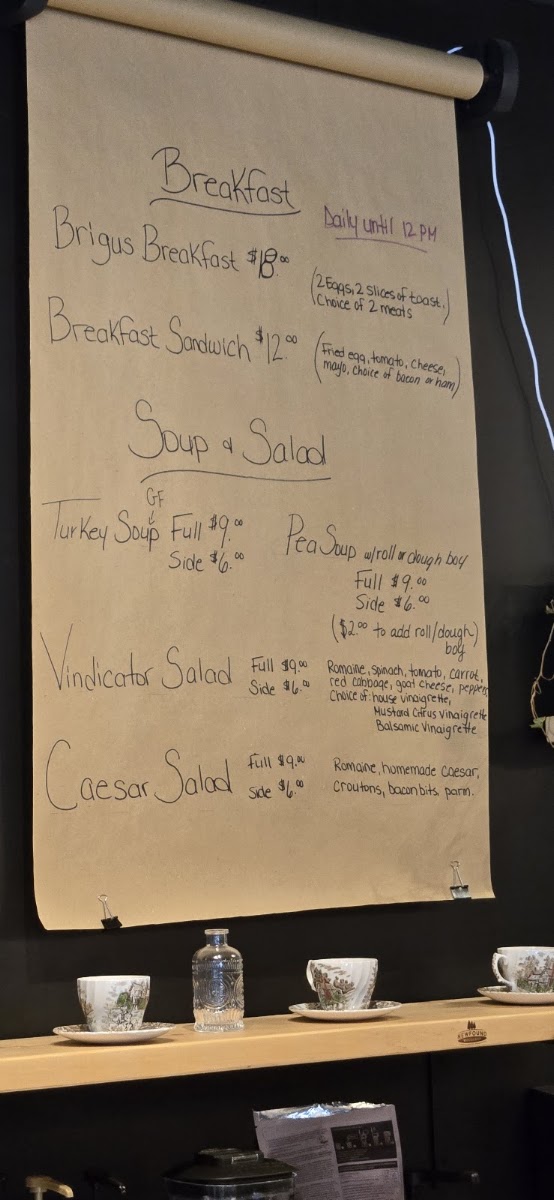 Breakfast
Daily until 12 PM
Brigus Breakfast $18.00
(2 Eggs, 2 slices of toast,
Choice of 2 meats)
Breakfast Sandwich $12.00
(Fried egg, tomato, cheese,
mayo, choice of bacon or ham)
Soup & Salad
GF
Turkey Soup Full $9.00
Side $6.00
Pea Soup w/roll or dough boy
Full $9.00
Side $6.00
($2.00 to add roll/dough
boy)
Vindicator Salad Full $9.00
Side $6.00
Romaine, spinach, tomato, carrot,
red cabbage, goat cheese, peppers
Choice of: house vinaigrette,
Mustard Citrus Vinaigrette
Balsamic Vinaigrette
Caesar Salad Full $9.00
Side $6.00
Romaine, homemade caesar,
croutons, bacon bits, parm.
NEWFOUND